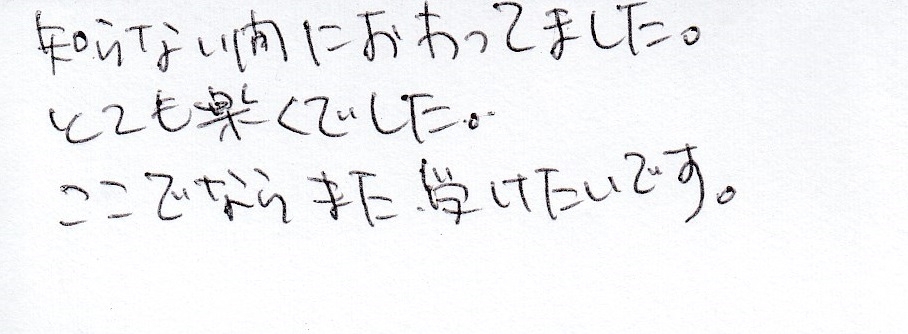 知らない内におわってました。
とても楽くでした。
ここでならまた受けたいです。